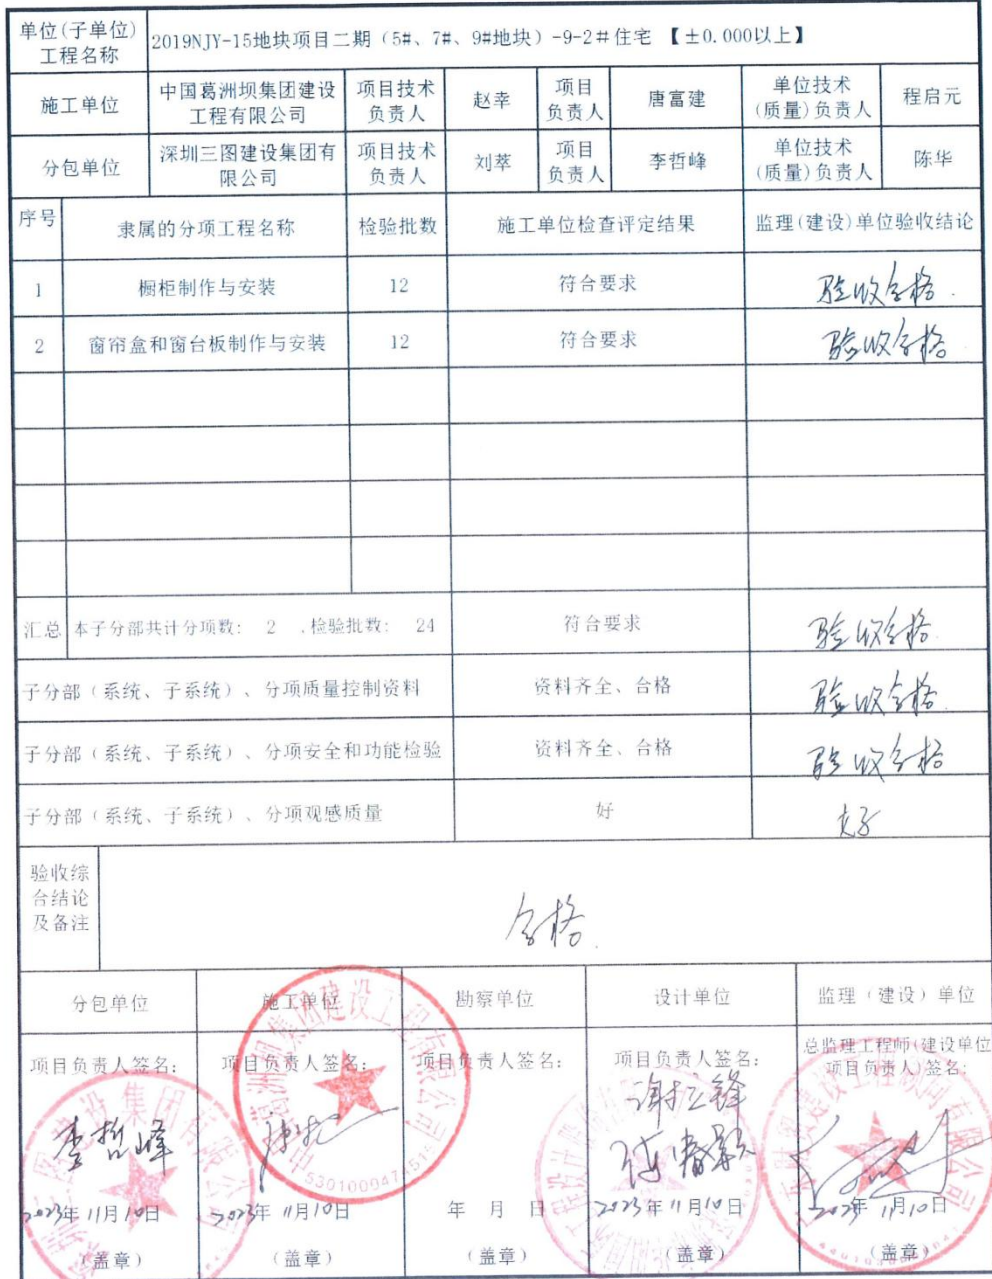 单位(子单位)
工程名称
2019NJY-15地块项目二期（5#、7#、9#地块）-9-2#住宅 【±0.000以上】
施工单位
中国葛洲坝集团建设
工程有限公司
项目技术
负责人
赵幸
项目
负责人
唐富建
单位技术
(质量)负责人
程启元
分包单位
深圳三图建设集团有
限公司
项目技术
负责人
刘萃
项目
负责人
李哲峰
单位技术
(质量)负责人
陈华
序号
隶属的分项工程名称
检验批数
施工单位检查评定结果
监理(建设)单位验收结论
1
橱柜制作与安装
12
符合要求
验收合格.
2
窗帘盒和窗台板制作与安装
12
符合要求
验收合格
汇总
本子分部共计分项数: 2 ,检验批数: 24
符合要求
验收合格.
子分部（系统、子系统）、分项质量控制资料
资料齐全、合格
验收合格.
子分部（系统、子系统）、分项安全和功能检验
资料齐全、合格
验收合格
子分部（系统、子系统）、分项观感质量
好
好
验收综
合结论
及备注
合格.
分包单位
施工单位
勘察单位
设计单位
监理（建设）单位
项目负责人签名:
项目负责人签名:
项目负责人签名:
项目负责人签名:
总监理工程师(建设单位
项目负责人)签名:
李哲峰
2023年11月10日
2023年11月10日
年 月 日
2023年11月10日
2023年11月10日
（盖章）
（盖章）
（盖章）
（盖章）
（盖章）